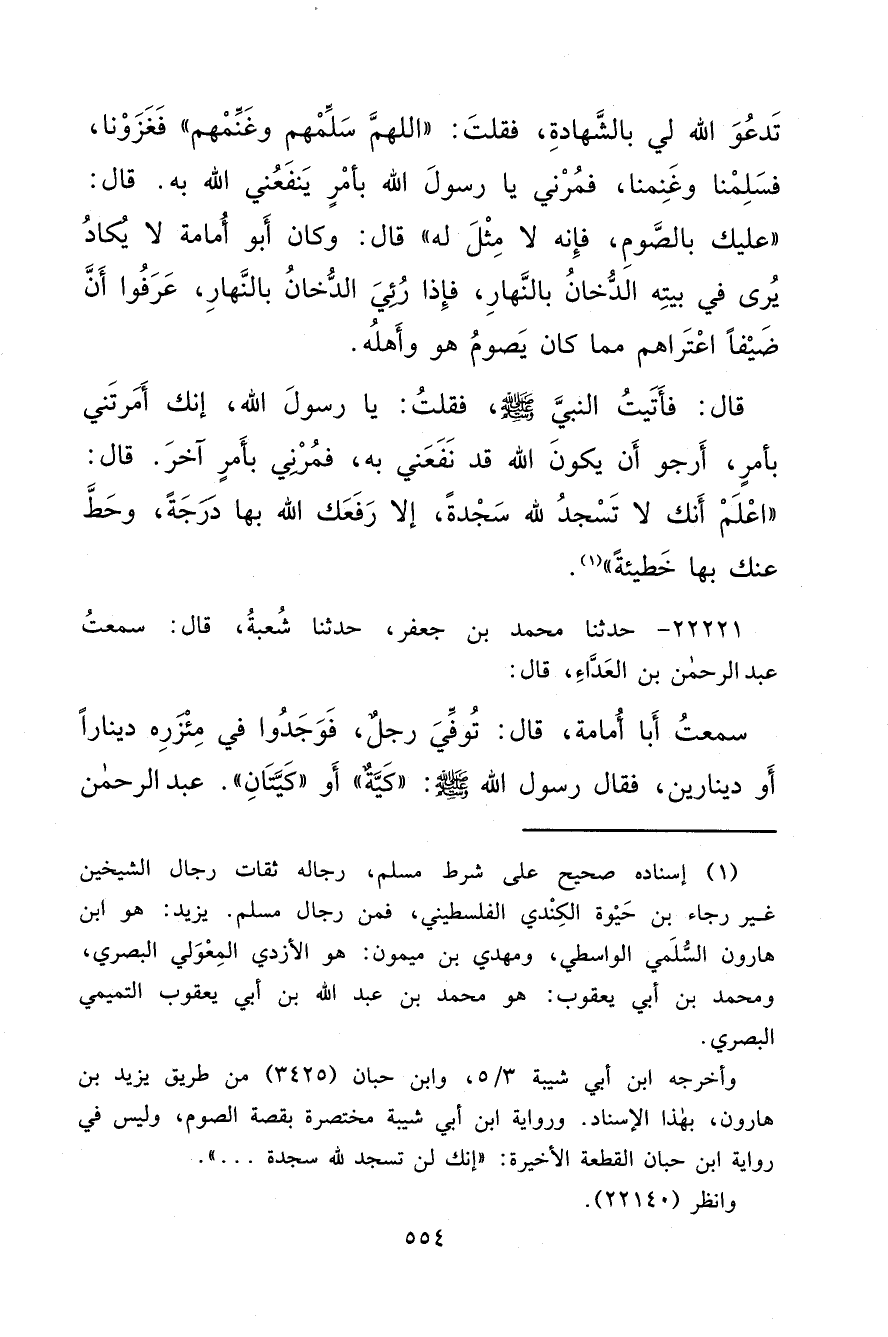 تَدعُوَ الله لي بالشَّهادةِ، فقلتَ: «اللهمَّ سَلِّمْهم وغَنِّمْهم» فَغَزَوْنا،
فسَلِمْنا وغَنِمنا، فمُرْني يا رسولَ الله بأمْرٍ يَنفَعُني الله به. قال:
«عليك بالصَّومِ، فإنه لا مِثْلَ له» قال: وكان أَبو أُمامة لا يُكادُ
يُرى في بيتِه الدُّخانُ بالنَّهارِ، فإِذا رُئِيَ الدُّخانُ بالنَّهارِ، عَرَفُوا أَنَّ
ضَيْفاً اعْتَراهم مما كان يَصومُ هو وأَهلُه.
قال: فأَتَيتُ النبيَّ ﷺ، فقلتُ: يا رسولَ الله، إنك أَمَرتَني
بأمرٍ، أَرجو أَن يكونَ الله قد نَفَعَني به، فمُرْنِي بأَمرٍ آخرَ. قال:
«اعْلَمْ أَنك لا تَسْجدُ لله سَجْدةً، إلا رَفَعَك الله بها دَرَجَةً، وحَطَّ
عنك بها خَطيئةً»(١).
٢٢٢٢١- حدثنا محمد بن جعفر، حدثنا شُعبةُ، قال: سمعتُ
عبد الرحمٰن بن العَدَّاءِ، قال:
سمعتُ أَبا أُمامة، قال: تُوفِّيَ رجلٌ، فَوَجَدُوا في مِئْزَرِه ديناراً
أَو دينارين، فقال رسول الله ﷺ: «كَيَّةٌ» أَو «كَيَّتَانِ». عبد الرحمٰن
(١) إسناده صحيح على شرط مسلم، رجاله ثقات رجال الشيخين
غير رجاء بن حَيْوة الكِنْدي الفلسطيني، فمن رجال مسلم. يزيد: هو ابن
هارون السُّلَمي الواسطي، ومهدي بن ميمون: هو الأزدي المِعْوَلي البصري،
ومحمد بن أبي يعقوب: هو محمد بن عبد الله بن أبي يعقوب التميمي
البصري.
وأخرجه ابن أبي شيبة ٥/٣، وابن حبان (٣٤٢٥) من طريق يزيد بن
هارون، بهٰذا الإسناد. ورواية ابن أبي شيبة مختصرة بقصة الصوم، وليس في
رواية ابن حبان القطعة الأخيرة: «إنك لن تسجد لله سجدة ...».
وانظر (٢٢١٤٠).
٥٥٤